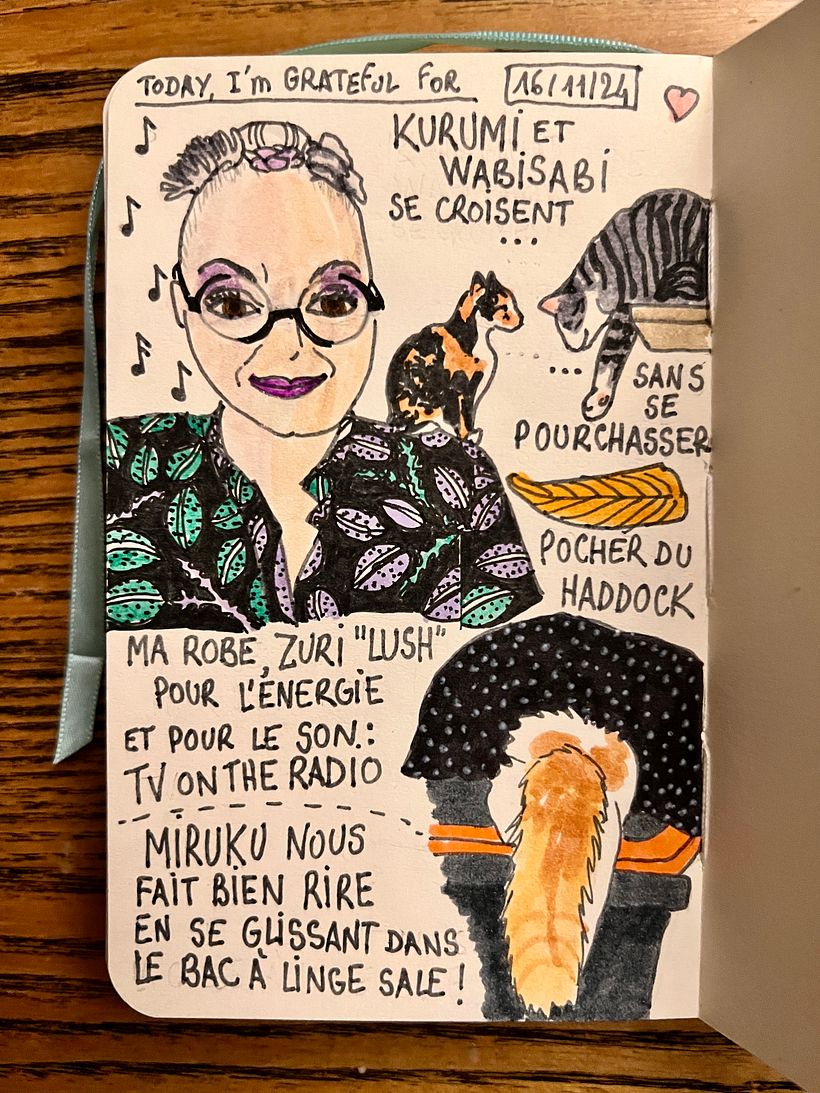 TODAY, I'm GRATEFUL FOR
16/11/24
KURUMI ET
WABISABI
SE CROISENT
...
... SANS
SE
POURCHASSER
POCHER DU
HADDOCK
MA ROBE, ZURI "LUSH"
POUR L'ÉNERGIE
ET POUR LE SON :
TV ON THE RADIO
MIRUKU NOUS
FAIT BIEN RIRE
EN SE GLISSANT DANS
LE BAC À LINGE SALE !